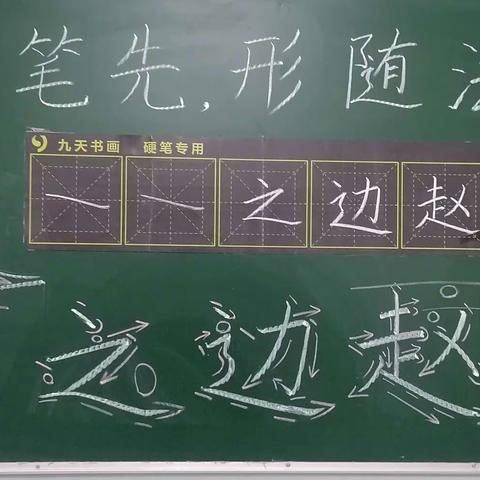 笔先,形随
九天书画 硬笔专用
之边赵
之边赵